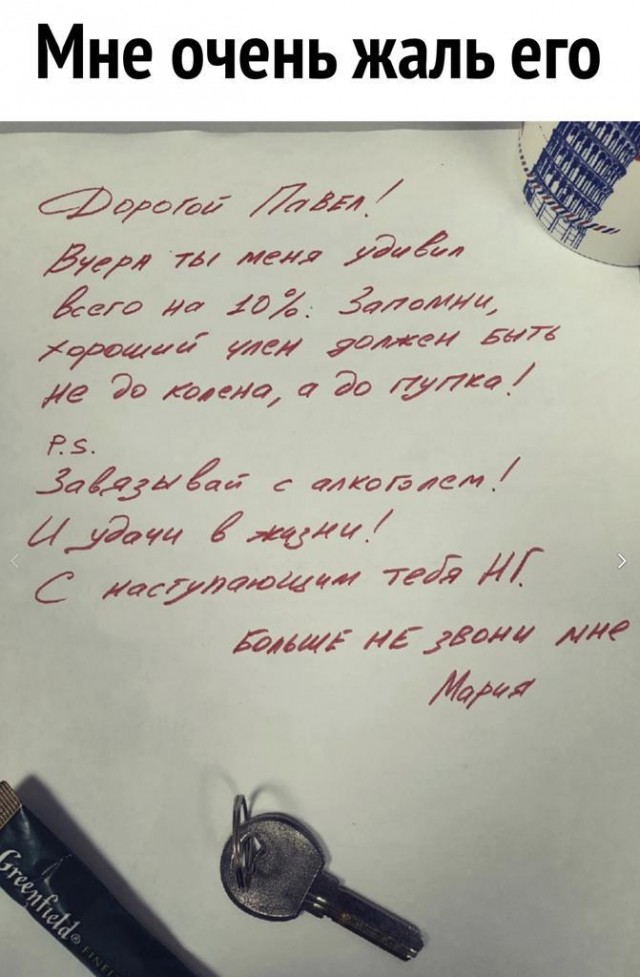 Мне очень жаль его
Дорогой Павел!
Вчера ты меня удивил
всего на 10%. Запомни,
хороший член должен быть
не до колена, а до пупка!
P.S.
Завязывай с алкоголем!
И удачи в жизни!
С наступающим тебя НГ.
Больше не звони мне
Мария
Greenfield®